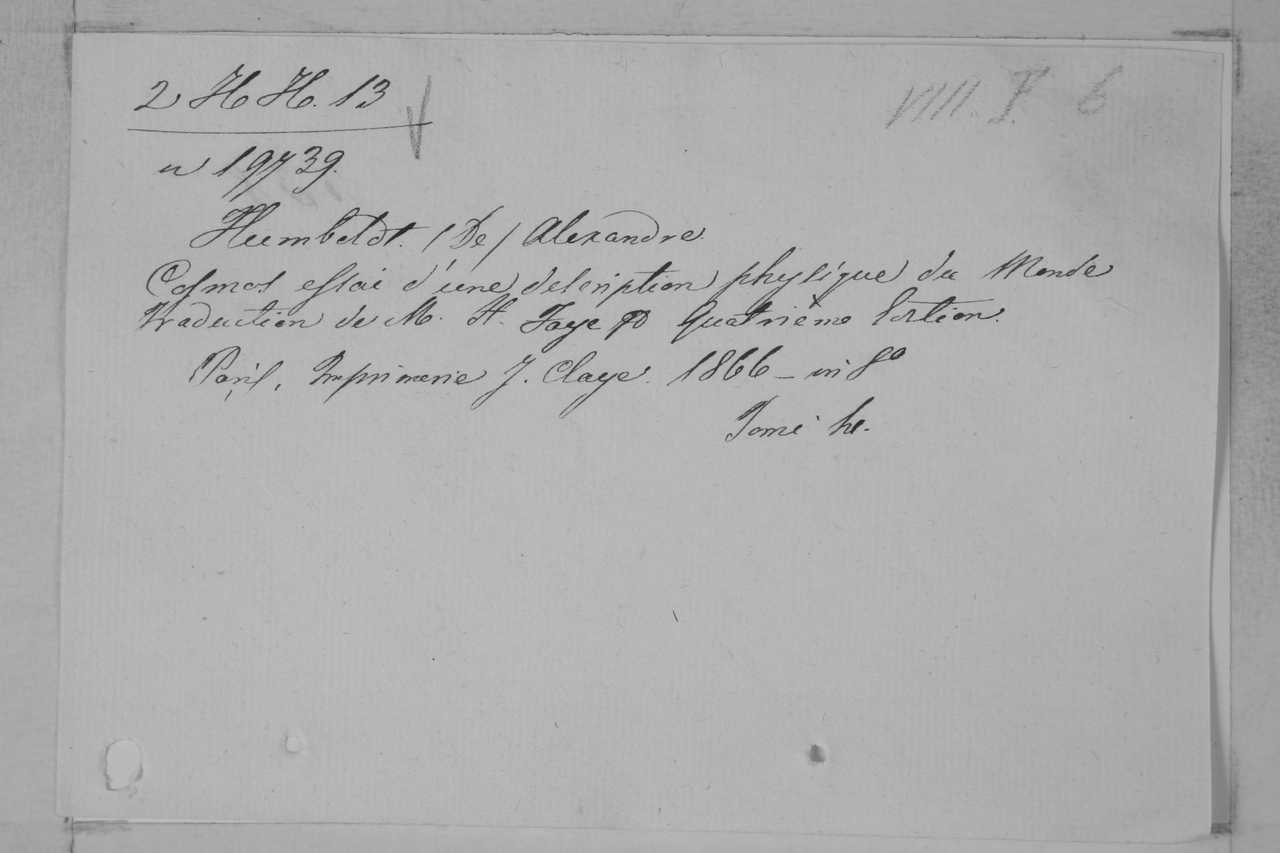 2 H H. 13
VIII. F. 6
n 19739.
Humboldt. (De) Alexandre.
Cosmos essai d'une description physique du Monde
traduction de M. H. Faye Quatrième Edition.
Paris, Imprimerie J. Claye. 1866 - in 8º
Tome